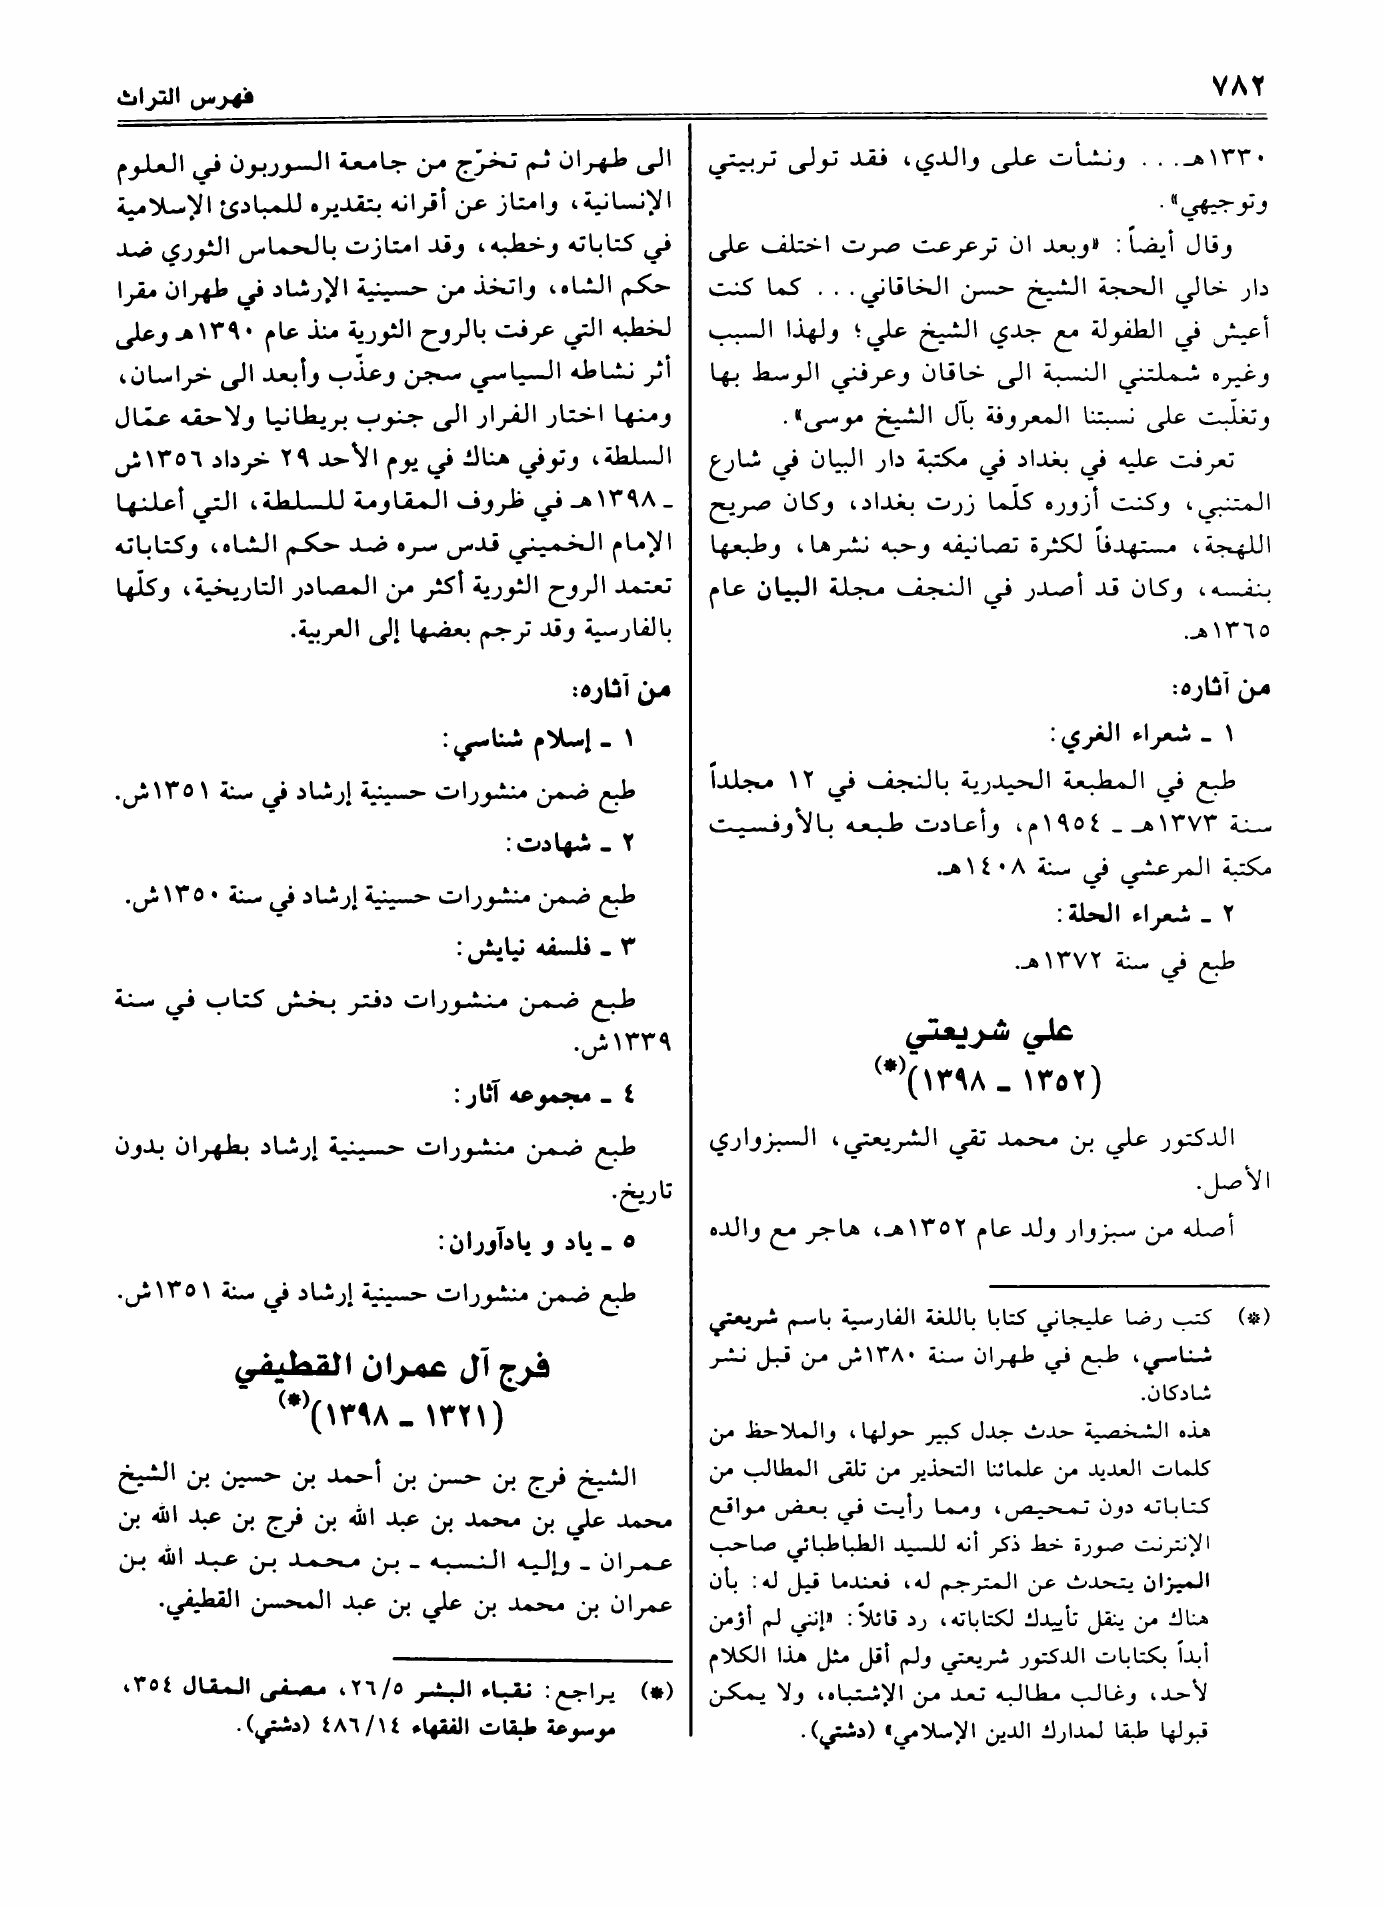 ٧٨٢
فهرس التراث
١٣٣٠هـ... ونشأت على والدي، فقد تولى تربيتي
وتوجيهي».
وقال أيضاً: «وبعد ان ترعرعت صرت اختلف على
دار خالي الحجة الشيخ حسن الخاقاني... كما كنت
أعيش في الطفولة مع جدي الشيخ علي؛ ولهذا السبب
وغيره شملتني النسبة الى خاقان وعرفني الوسط بها
وتغلّبت على نسبتنا المعروفة بآل الشيخ موسى».
تعرفت عليه في بغداد في مكتبة دار البيان في شارع
المتنبي، وكنت أزوره كلّما زرت بغداد، وكان صريح
اللهجة، مستهدفاً لكثرة تصانيفه وحبه نشرها، وطبعها
بنفسه، وكان قد أصدر في النجف مجلة البيان عام
١٣٦٥هـ.
من آثاره:
١ ـ شعراء الغري:
طبع في المطبعة الحيدرية بالنجف في ١٢ مجلداً
سنة ١٣٧٣هـ ـ ١٩٥٤م، وأعادت طبعه بالأوفسيت
مكتبة المرعشي في سنة ١٤٠٨هـ.
٢ ـ شعراء الحلة:
طبع في سنة ١٣٧٢هـ.
علي شريعتي
(١٣٥٢ ـ ١٣٩٨)(*)
الدكتور علي بن محمد تقي الشريعتي، السبزواري
الأصل.
أصله من سبزوار ولد عام ١٣٥٢هـ، هاجر مع والده
(*) كتب رضا عليجاني كتابا باللغة الفارسية باسم شريعتي
شناسي، طبع في طهران سنة ١٣٨٠ش من قبل نشر
شادكان.
هذه الشخصية حدث جدل كبير حولها، والملاحظ من
كلمات العديد من علمائنا التحذير من تلقى المطالب من
كتاباته دون تمحيص، ومما رأيت في بعض مواقع
الإنترنت صورة خط ذكر أنه للسيد الطباطبائي صاحب
الميزان يتحدث عن المترجم له، فعندما قيل له: بأن
هناك من ينقل تأييدك لكتاباته، رد قائلاً: «إنني لم أؤمن
أبداً بكتابات الدكتور شريعتي ولم أقل مثل هذا الكلام
لأحد، وغالب مطالبه تعد من الإشتباه، ولا يمكن
قبولها طبقا لمدارك الدين الإسلامي» (دشتي).
الى طهران ثم تخرّج من جامعة السوربون في العلوم
الإنسانية، وامتاز عن أقرانه بتقديره للمبادئ الإسلامية
في كتاباته وخطبه، وقد امتازت بالحماس الثوري ضد
حكم الشاه، واتخذ من حسينية الإرشاد في طهران مقرا
لخطبه التي عرفت بالروح الثورية منذ عام ١٣٩٠هـ وعلى
أثر نشاطه السياسي سجن وعذّب وأبعد الى خراسان،
ومنها اختار الفرار الى جنوب بريطانيا ولاحقه عمّال
السلطة، وتوفي هناك في يوم الأحد ٢٩ خرداد ١٣٥٦ش
ـ ١٣٩٨هـ في ظروف المقاومة للسلطة، التي أعلنها
الإمام الخميني قدس سره ضد حكم الشاه، وكتاباته
تعتمد الروح الثورية أكثر من المصادر التاريخية، وكلّها
بالفارسية وقد ترجم بعضها إلى العربية.
من آثاره:
١ ـ إسلام شناسي:
طبع ضمن منشورات حسينية إرشاد في سنة ١٣٥١ش.
٢ ـ شهادت:
طبع ضمن منشورات حسينية إرشاد في سنة ١٣٥٠ش.
٣ ـ فلسفه نيايش:
طبع ضمن منشورات دفتر بخش كتاب في سنة
١٣٣٩ش.
٤ ـ مجموعه آثار:
طبع ضمن منشورات حسينية إرشاد بطهران بدون
تاريخ.
٥ ـ ياد و يادآوران:
طبع ضمن منشورات حسينية إرشاد في سنة ١٣٥١ش.
فرج آل عمران القطيفي
(١٣٢١ ـ ١٣٩٨)(*)
الشيخ فرج بن حسن بن أحمد بن حسين بن الشيخ
محمد علي بن محمد بن عبد الله بن فرج بن عبد الله بن
عمران ـ وإليه النسبه ـ بن محمد بن عبد الله بن
عمران بن محمد بن علي بن عبد المحسن القطيفي.
(*) يراجع: نقباء البشر ٢٦/٥، مصفى المقال ٣٥٤،
موسوعة طبقات الفقهاء ٤٨٦/١٤ (دشتي).